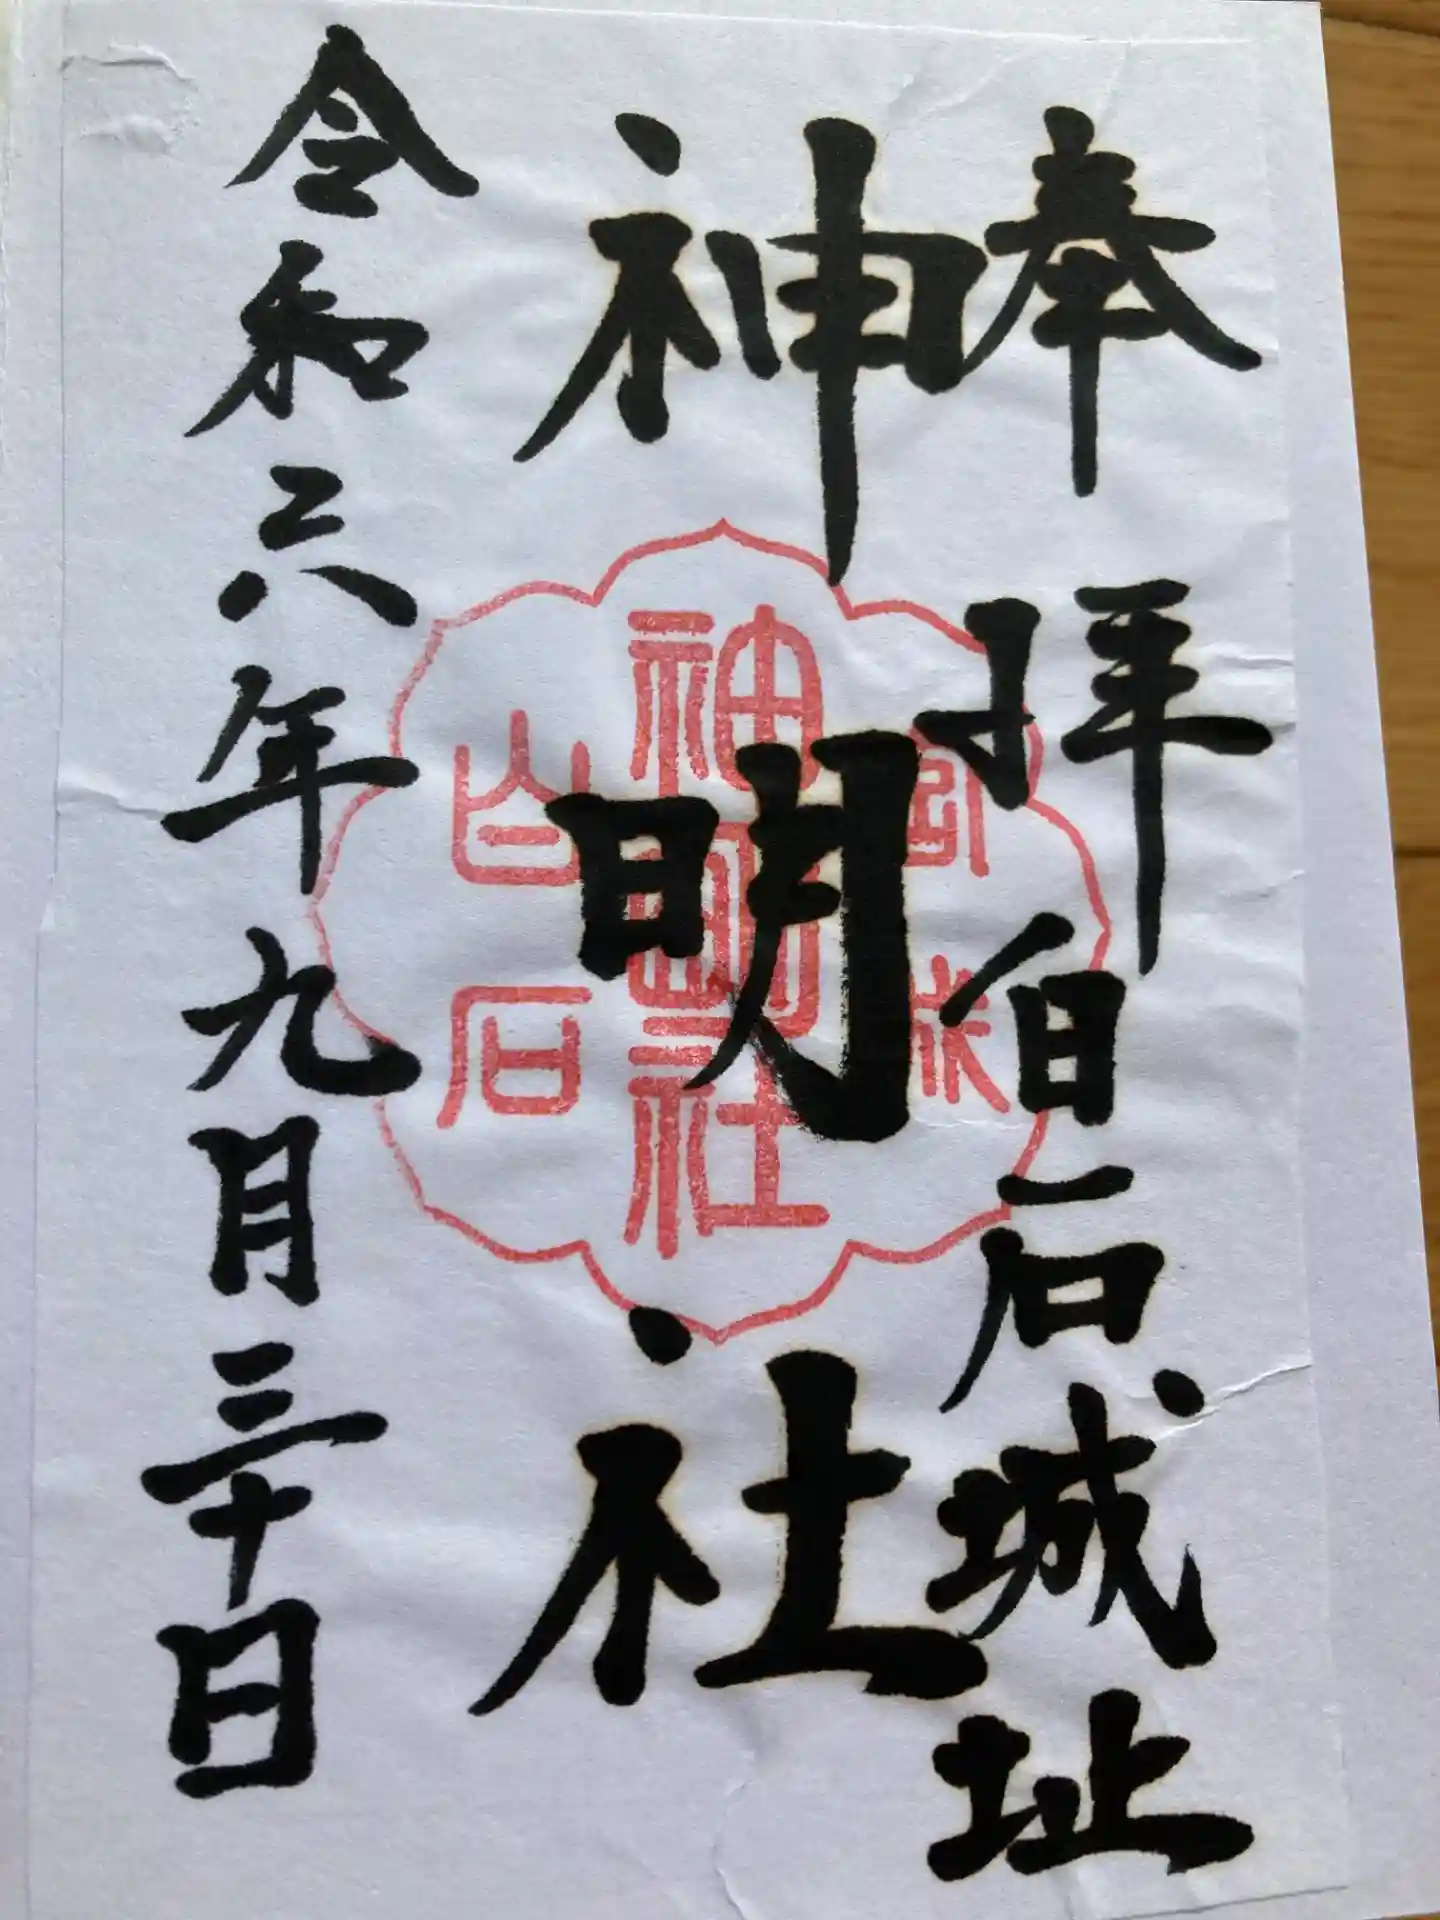 奉拝
白石城址
神明社
神明社
白石
令和六年九月三十日